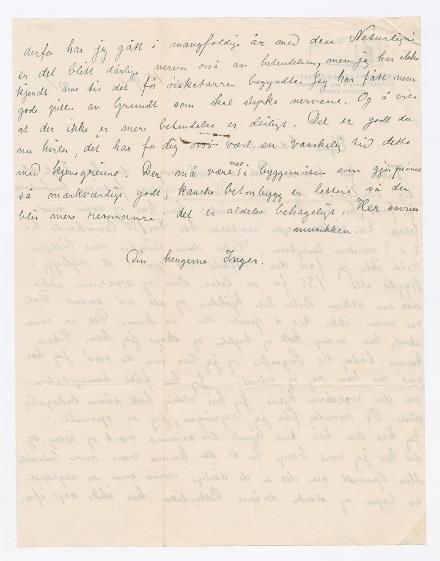 derfor har jeg gått i mangfoldige år med den Naturligvis
er det blitt dårlige nerver også av betendelsen, men jeg har ikke
kjendt noe til det før viekatarren begyndte. Jeg har fått noen
gode piller av Grundt som skal styrke nervene. Og å vite
at der ikke er mere betendelse er deiligt. Det er godt du
nu hviler, det har for dig vært en vanskelig tid dette
med hjemegreiene Der må være noe i byggemåten som gjør pianoet
så mærkværdigt godt, kanske betonbygg er lettere så der
blir mere resonans, det er aldeles behageligt Her savnes
musikken.
Din hengivne Inger.